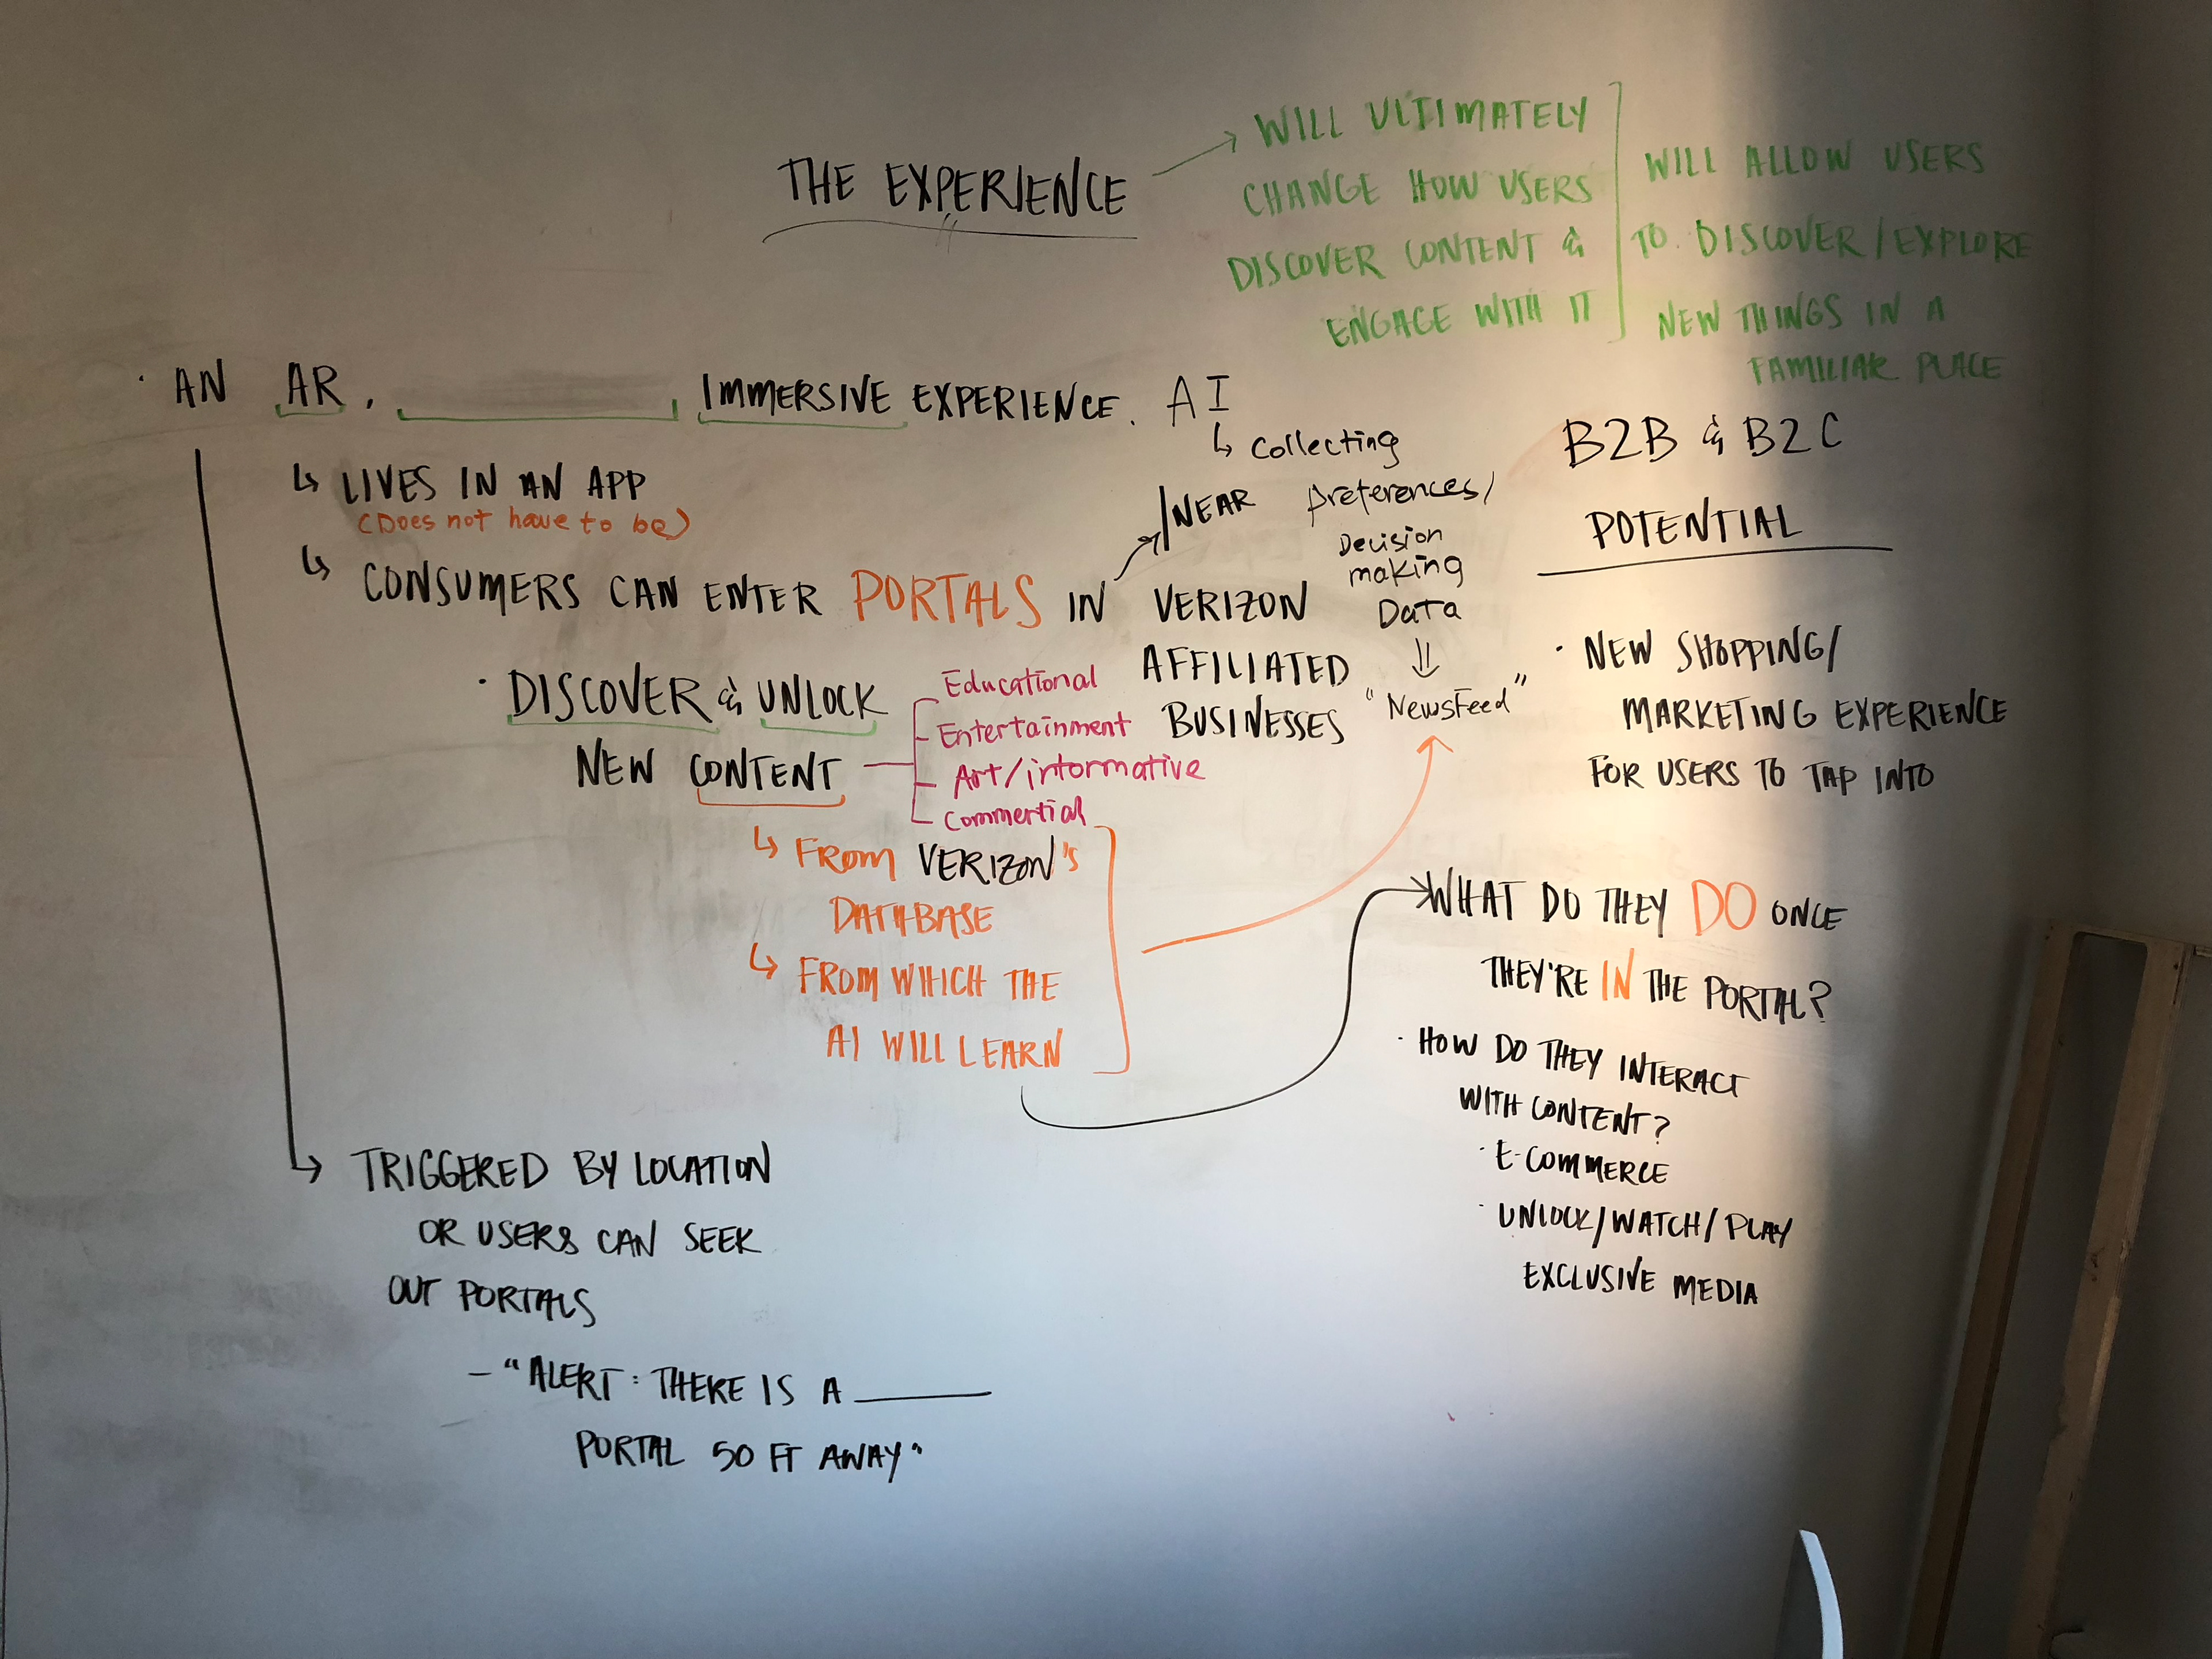 THE EXPERIENCE
WILL ULTIMATELY
CHANGE HOW USERS
DISCOVER CONTENT &
ENGAGE WITH IT
WILL ALLOW USERS
TO DISCOVER/EXPLORE
NEW THINGS IN A
FAMILIAR PLACE
· AN AR, ________, IMMERSIVE EXPERIENCE. AI
↳ Collecting
preferences/
Decision
making
Data
⇓
"NewsFeed"
↳ LIVES IN AN APP
(Does not have to be)
↳ CONSUMERS CAN ENTER PORTALS IN VERIZON
/NEAR
AFFILIATED
BUSINESSES
· DISCOVER & UNLOCK
NEW CONTENT
Educational
Entertainment
Art/informative
Commertial
↳ FROM VERIZON'S
DATABASE
↳ FROM WHICH THE
AI WILL LEARN
↳ TRIGGERED BY LOCATION
OR USERS CAN SEEK
OUT PORTALS
- "ALERT: THERE IS A ________
PORTAL 50 FT AWAY"
B2B & B2C
POTENTIAL
· NEW SHOPPING/
MARKETING EXPERIENCE
FOR USERS TO TAP INTO
WHAT DO THEY DO ONCE
THEY'RE IN THE PORTAL?
· HOW DO THEY INTERACT
WITH CONTENT?
· E-COMMERCE
· UNLOCK/WATCH/PLAY
EXCLUSIVE MEDIA